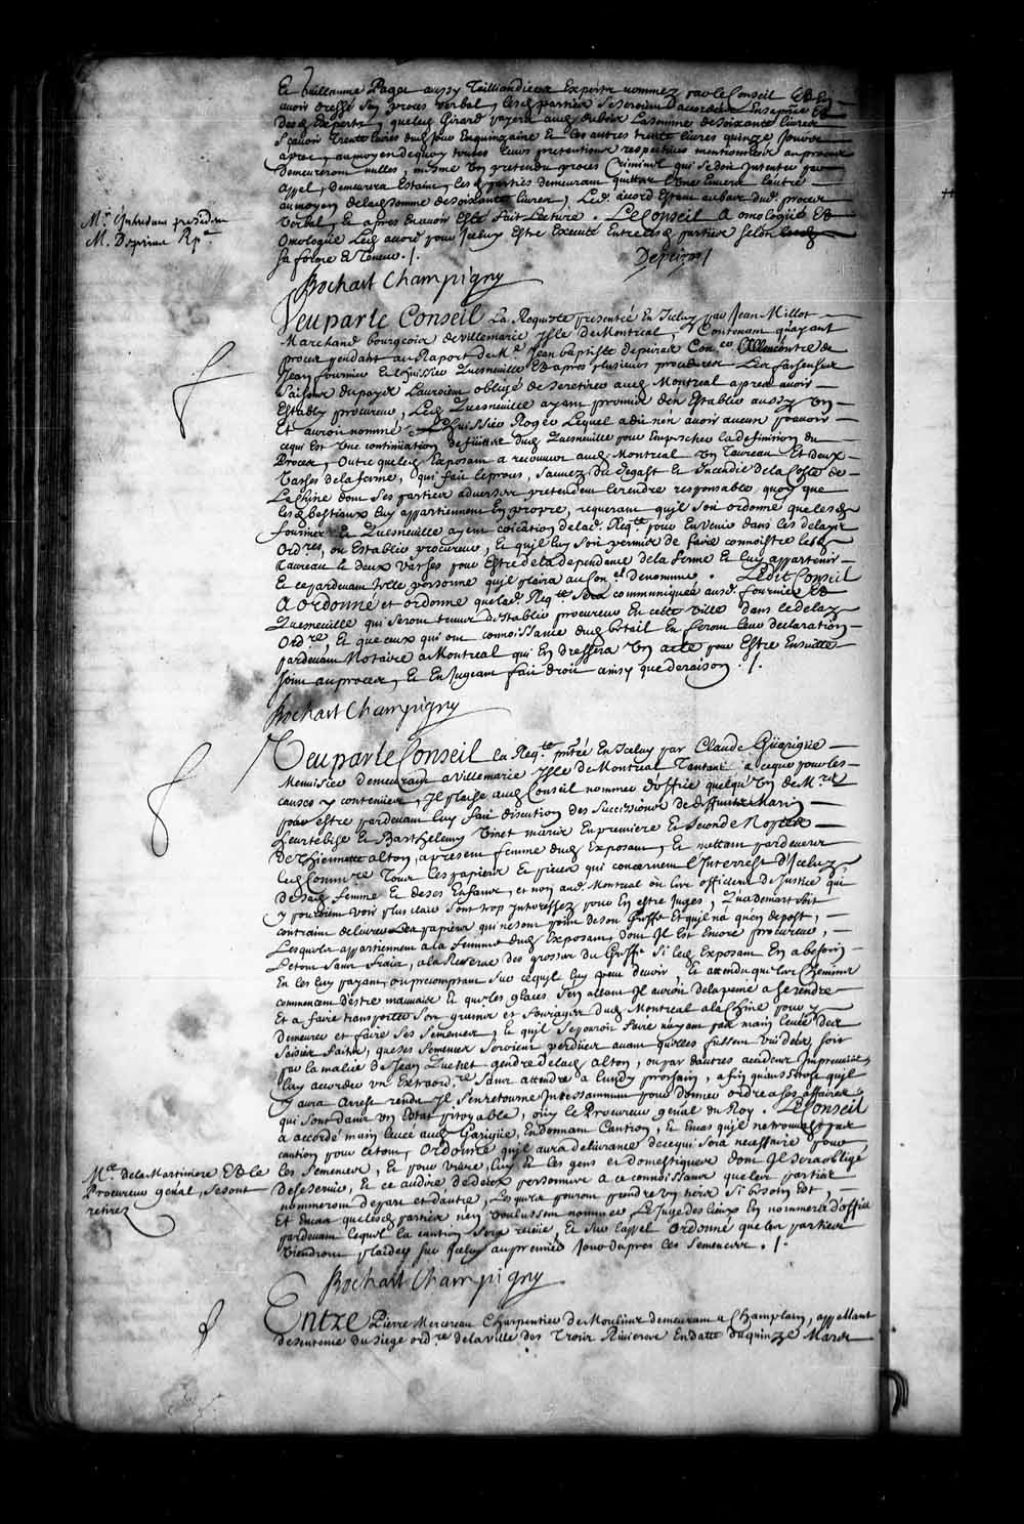 Et Guillaume Pagé aussy Taillandiers Expertz nommez par le Conseil Et En
avoir dressé Son proces verbal, lesd. parties Seseroient accordées Ensemble Et
desd. Expertz, que led. Girard payera aud. la somme de soixante livres
Sçavoir Trente livres dud. jour En quinzaine Et les autres trente livres quinze jours
apres, au moyen dequoy toutes leurs pretentions respectives mentionnées au proces
demeureront nulles, mesme Un pretendu proces Criminel qui se doit Intenter par
appel, Demeurera Estaint, lesd. parties demeurant quittes l'Une Envers l'autre
au moyen de lad. somme de soixante livres, Led. acord Estant au bas dud. proces
Verbal, Et apres En avoir Esté fait Lecture. Le Conseil A omologué Et
Omologue Led. acord pour Iceluy Estre Executé Entre lesd. parties selon
Sa forme Et Teneur ./.
Mr. l'Intendant president
M. Depeiras Rpr.
Depeiras
Bochart Champigny
Veu par le Conseil La Requeste presentée En Iceluy par Jean Millot
Marchand bourgeois de Villemarie Isle de Montreal, Contenant qu'ayant
proces pendant au Raport de Me. Jean baptiste depeiras Conер. Allencontre de
Jean fournier Et l'huissier Quesneville Et apres plusieurs procedures Les facheuses
Saisons du payis L'auroient obligé de se retirer aud. Montreal apres avoir
Estably procureur, Led. Quesneville ayant promis d'en Establir aussy Un
Et auroit nommé L'huissier Roger Lequel a dit n'en avoir aucun pouvoir
ce qui Est Une continuation de fuitte dud. Quesneville pour Empescher la definition du
Proces, Outre que led. Exposant a recouvert aud. Montreal Un Taureau Et deux
Vaches de la ferme, qui fait le proces, Sauvez du degast Et Incendie de la Coste de
La Chine dont Ses parties adverses pretendent le rendre responsable, quoy que
lesd. bestiaux luy appartiennent En propre, requerant qu'il soit ordonné que lesd.
fournier Et Quesneville ayent comunication de lad. Reqte. pour En venir dans les delays
Ordres, ou Establir procureur, Et qu'il luy soit permis de faire connoistre lesd.
Taureau Et deux Vaches pour Estre de la dependance de la ferme Et luy appartenir
Et ce pardevant telle personne qu'il plaira au Conel. denommer. Ledit Conseil
A ordonné et ordonne que lad. Reqte. Sera communiquée ausd. fournier Et
Quesneville qui seront tenus d'Establir procureur En cette ville dans le delay
Ordre., Et que ceux qui ont connoissance dud. betail En feront leur declaration
pardevant Notaire a Montreal qui En dressera Un acte pour Estre Ensuitte
joint au proces, Et En Jugeant fait droit ainsy que de raison ./.
Bochart Champigny
Veu par le Conseil la Reqte. pntée En Iceluy par Claude Garigue
Menuisier demeurant a Villemarie Isle de Montreal Tendante a ce que pour les
causes y contenües, Il plaise aud. Conseil nommer d'office quelqu'Un de Mrs.
pour estre pardevant luy fait discution des Successions de deffunts Marin
heurtebise Et Barthelemy Vinet maris En premiere Et Seconde Nopces
de Thiennette alton, a present femme dud. Exposant, Et mettant pardevers
led. Commre. Tous les papiers Et pieces qui concernent l'Interrest d'Icelux
de sad. femme Et de ses Enfans, et non aud. Montreal ou les officiers de Justice qui
y pourroient voir plus clair sont trop Interessez pour En estre Juges, Qu'Ademart soit
contraint delivrer Les papiers qui ne sont point de son Greffe Et qu'il n'a qu'en depost,
Lesquels appartiennent a la femme dud. Exposant, dont Il est Encore procureur,
Et ce tout sans fraix, a la Reserve des grosses du Greffe Si led. Exposant En a besoin
En les luy payant, ou precomptant sur ce qu'il luy peut devoir, Et attendu que les Chemins
commencent d'estre mauvais Et que les glaces S'en allant Il auroit de la peine a se rendre
Et a faire transporter son grain et fourages dud. Montreal a la Chine pour y
demeurer et faire ses Semences, Et qu'il ne pouroit faire n'ayant pas main levée des
Saisies faites, que ses Semences seroient perdües avant qu'elles fussent vuidées, soit
par la malice de Jean Quenet gendre de lad. alton, ou par d'autres accidens Impreveus,
luy accorder un Extraordre. sans attendre a lundy prochain, afin qu'aussitost qu'il
y aura Arrest rendu Il s'en retourne Incessamment pour donner ordre a ses affaires
qui sont dans un Estat pitoyable, ouy le Procureur general du Roy. Le Conseil
a accordé main levée aud. Garigue, En donnant Caution, Et En cas qu'il ne trouvast pas
caution pour le tout, Ordonne qu'il aura delivrance de ce qui sera necessaire pour
les Semences, Et pour vivre, luy Et les gens et domestiques dont Il sera obligé
de se servir, Et ce audire de deux personnes a ce connoissans que les parties
nommeront de part et d'autre, Lesquels pouront prendre un tiers Si besoin Est,
Et En cas que lesd. parties n'en voulussent nommer Le Juge des lieux En nommera d'office
pardevant lequel la caution Sera receüe, Et sur l'appel Ordonne que les parties
Viendront plaider sur Iceluy au premier Jour d'apres les Semences ./.
Me. de la Martiniere Et le
Procureur general, se sont
retirez
Bochart Champigny
Entre Pierre Mercereau Charpentier de Moulins demeurant a Champlain, appellant
de sentence du Siege ordre. de la ville des Trois Rivieres En datte du quinze Mars